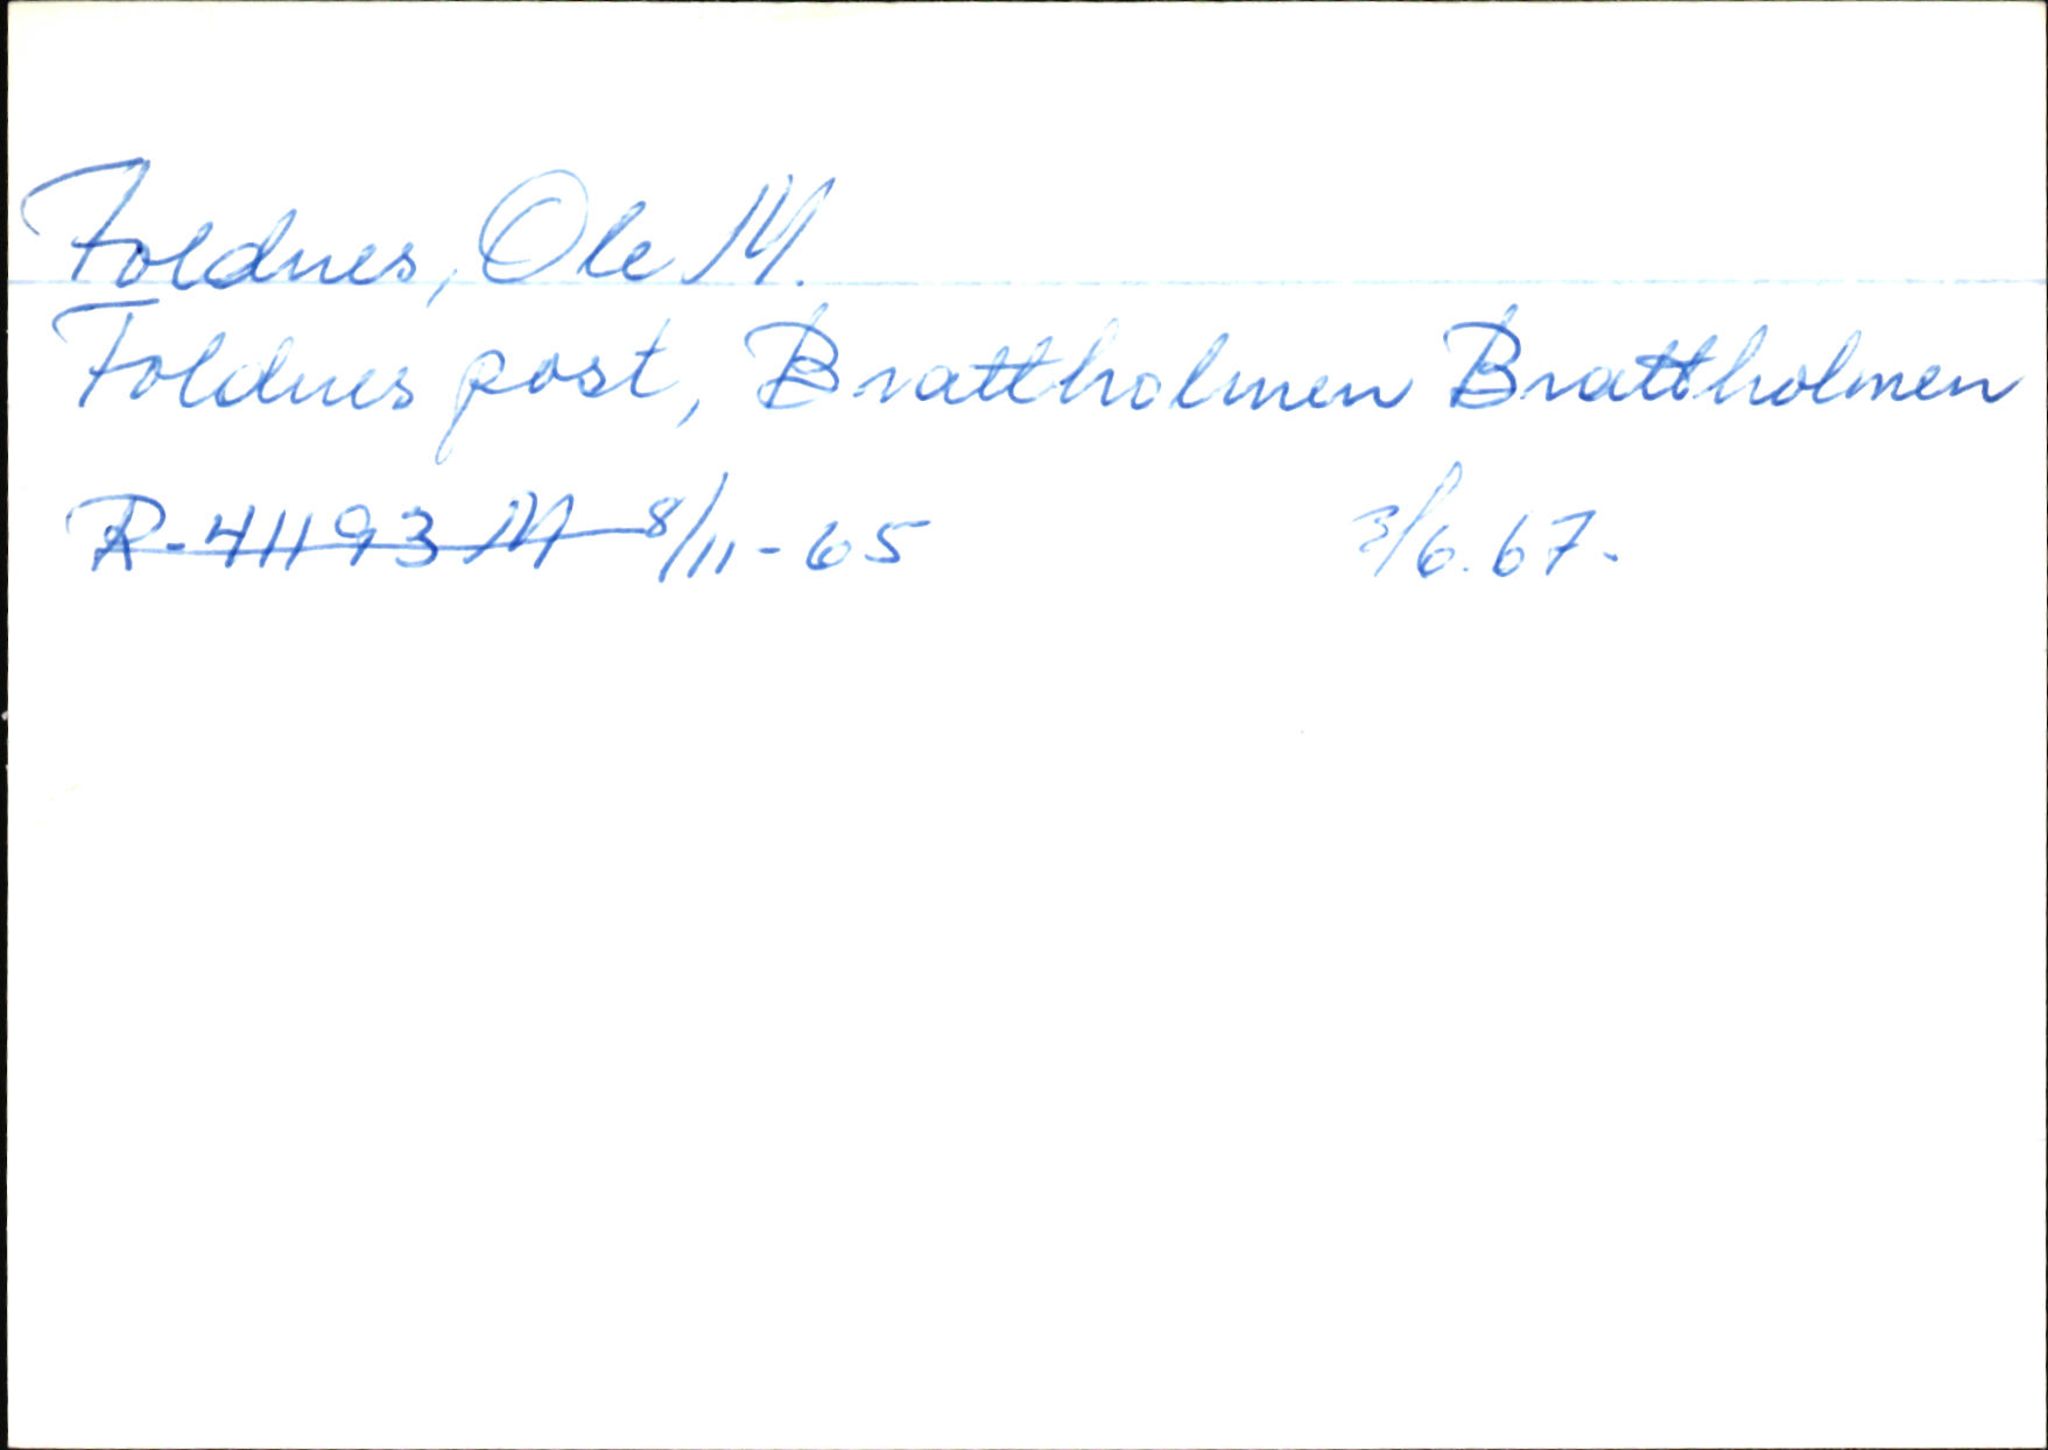 Foldnes, Ole M.
Foldnes post, Brattholmen Brattholmen
R-41193 M 8/11-65 3/6.67-